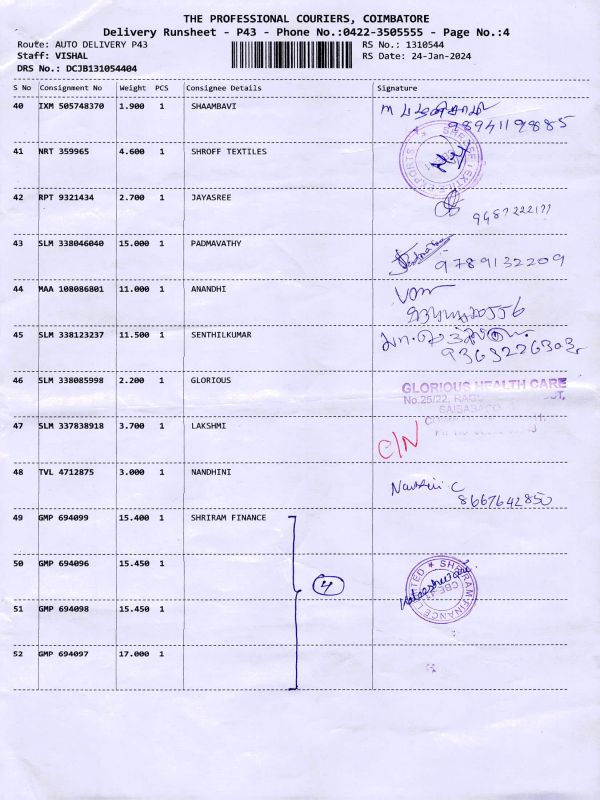 THE PROFESSIONAL COURIERS, COIMBATORE
Delivery Runsheet - P43 - Phone No.:0422-3505555 - Page No.:4
Route: AUTO DELIVERY P43 RS No.: 1310544
Staff: VISHAL RS Date: 24-Jan-2024
DRS No.: DCJB131054404
S No Consignment No Weight PCS Consignee Details Signature
40 IXM 505748370 1.900 1 SHAAMBAVI
9894119885
41 NRT 359965 4.600 1 SHROFF TEXTILES
42 RPT 9321434 2.700 1 JAYASREE
43 SLM 338046040 15.000 1 PADMAVATHY
9789132209
44 MAA 108086801 11.000 1 ANANDHI
45 SLM 338123237 11.500 1 SENTHILKUMAR
46 SLM 338085998 2.200 1 GLORIOUS
GLORIOUS HEALTH CARE
No.25/22,
47 SLM 337838918 3.700 1 LAKSHMI
C/N
48 TVL 4712875 3.000 1 NANDHINI
Nandhini C
8667642850
49 GMP 694099 15.400 1 SHRIRAM FINANCE
50 GMP 694096 15.450 1
4
SHRIRAM FINANCE
51 GMP 694098 15.450 1
52 GMP 694097 17.000 1